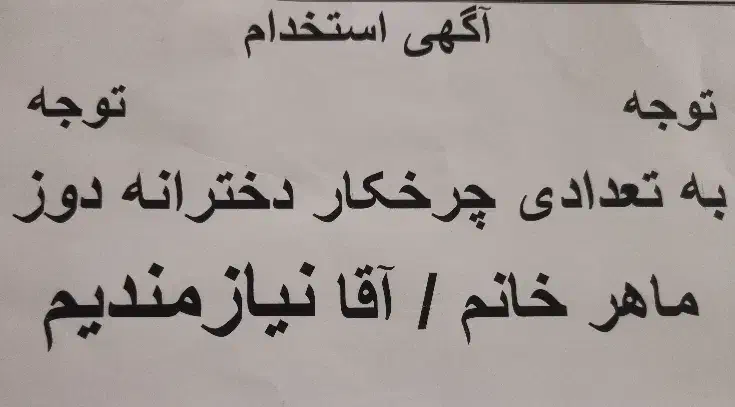 آگهی استخدام
توجه توجه
به تعدادی چرخکار دخترانه دوز
ماهر خانم / آقا نیازمندیم